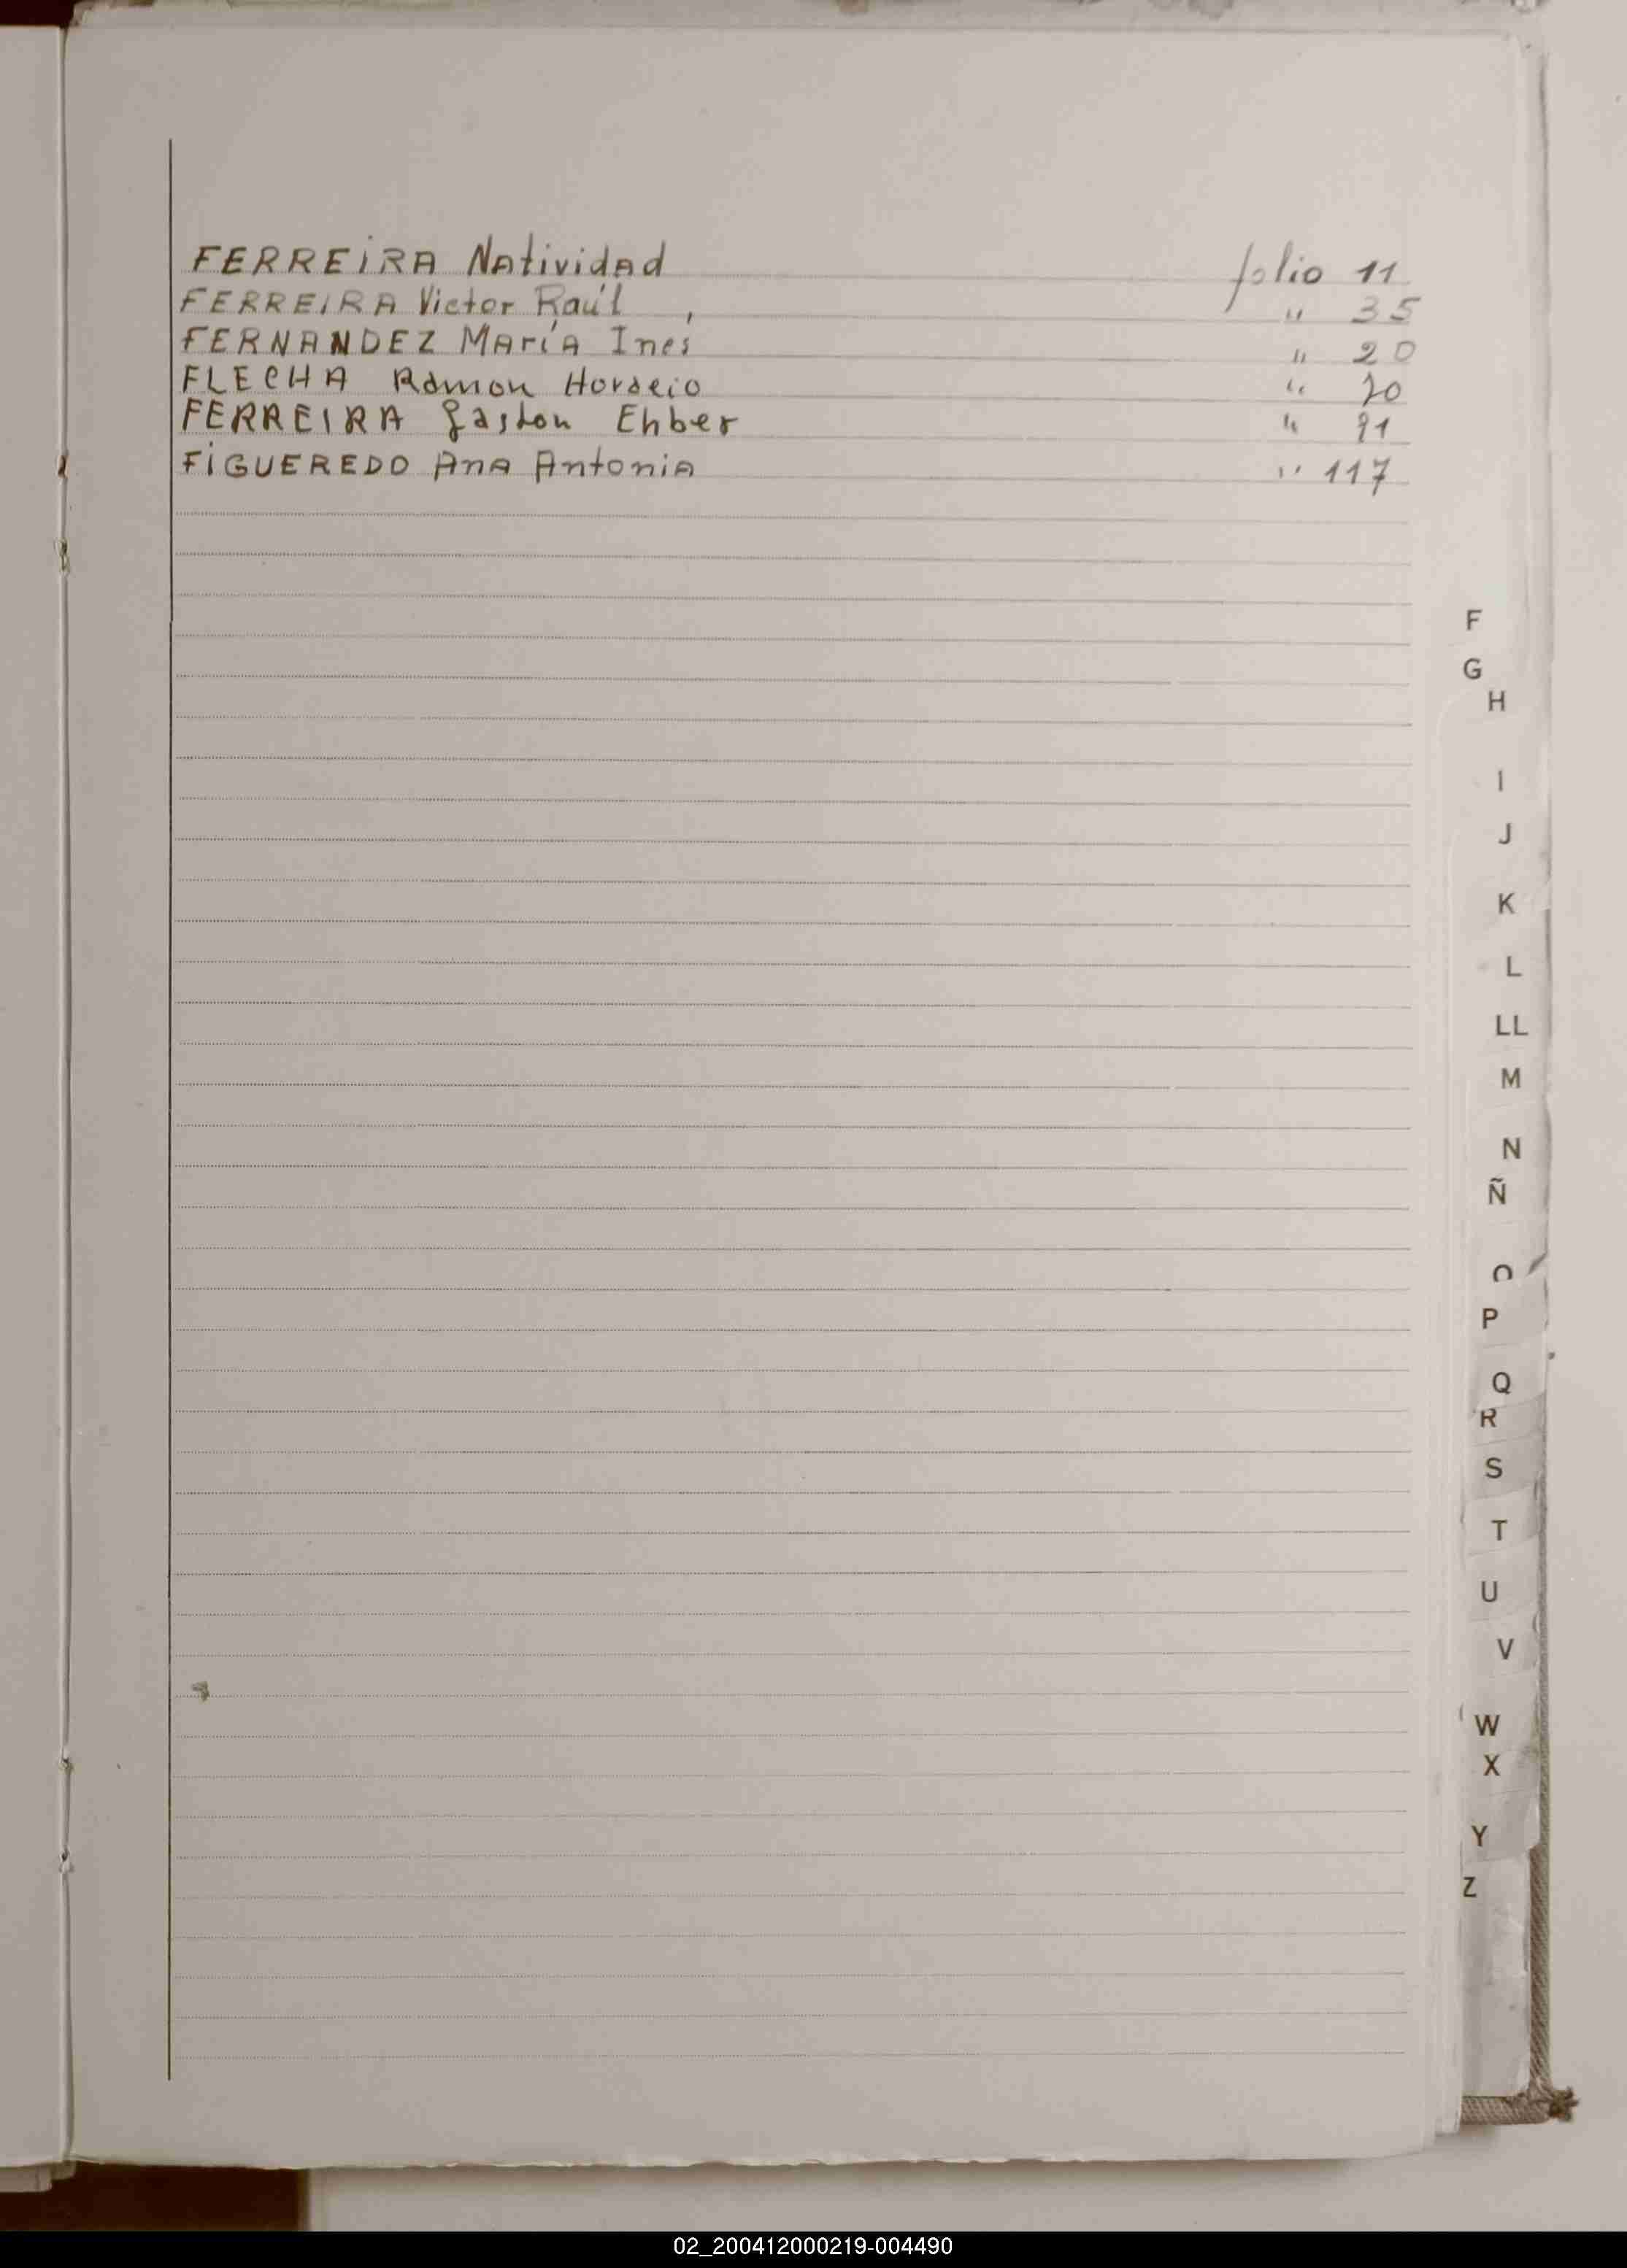 FERREIRA Natividad folio 11
FERREIRA Victor Raúl " 35
FERNANDEZ María Inés " 20
FLECHA Ramon Horacio " 70
FERREIRA Gaston Ehber " 91
FIGUEREDO Ana Antonia " 117
F
G
H
I
J
K
L
LL
M
N
Ñ
O
P
Q
R
S
T
U
V
W
X
Y
Z
02_200412000219-004490